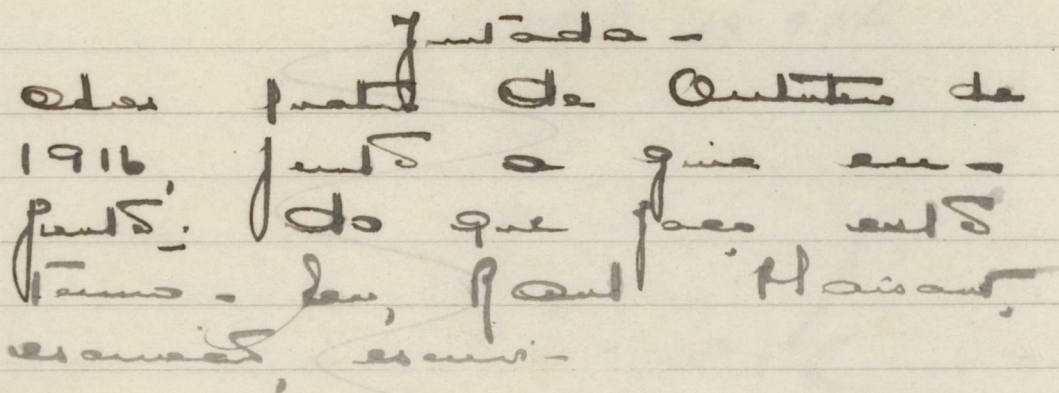 Juntada -
Aos quatro de Outubro de
1916, junto a guia em-
frente: do que faço este
termo - Eu, Raul Plaisant,
escrevente, escrevi -